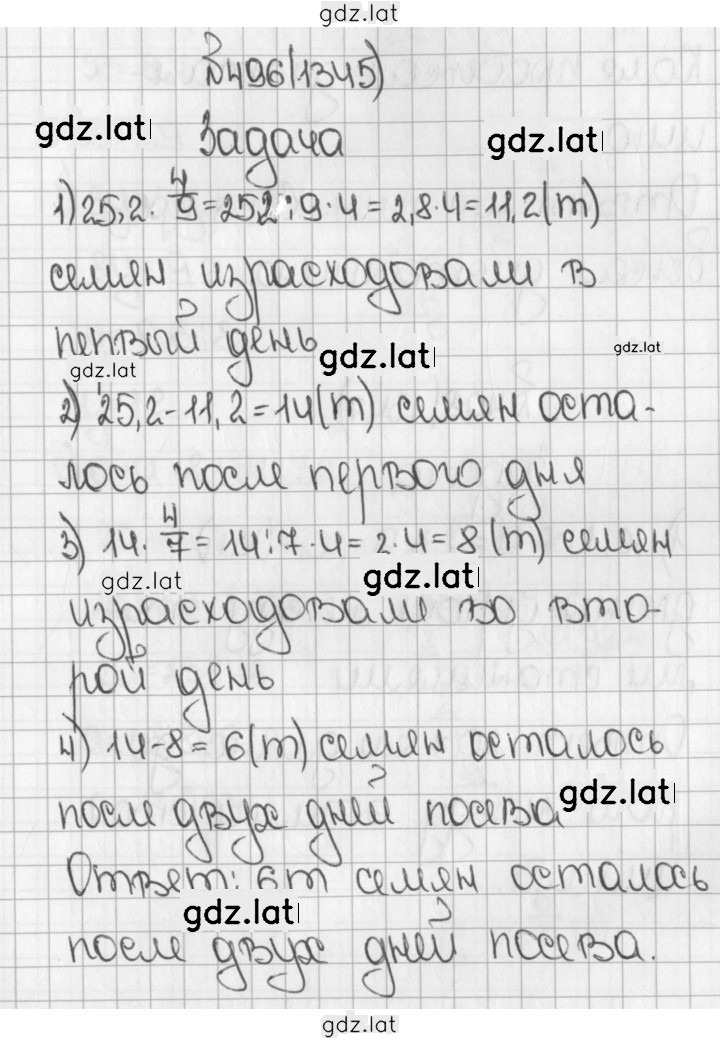 gdz.lat
№496(1345)
gdz.lat Задача gdz.lat
1) 25,2 · 4/9 = 25,2 : 9 · 4 = 2,8 · 4 = 11,2 (т)
семян израсходовали в
первый день gdz.lat gdz.lat
gdz.lat
2) 25,2 - 11,2 = 14 (т) семян оста-
лось после первого дня
3) 14 · 4/7 = 14 : 7 · 4 = 2 · 4 = 8 (т) семян
gdz.lat gdz.lat
израсходовали во вто-
рой день
4) 14 - 8 = 6 (т) семян осталось
после двух дней посева gdz.lat
Ответ: 6 т семян осталось
gdz.lat
после двух дней посева.
gdz.lat